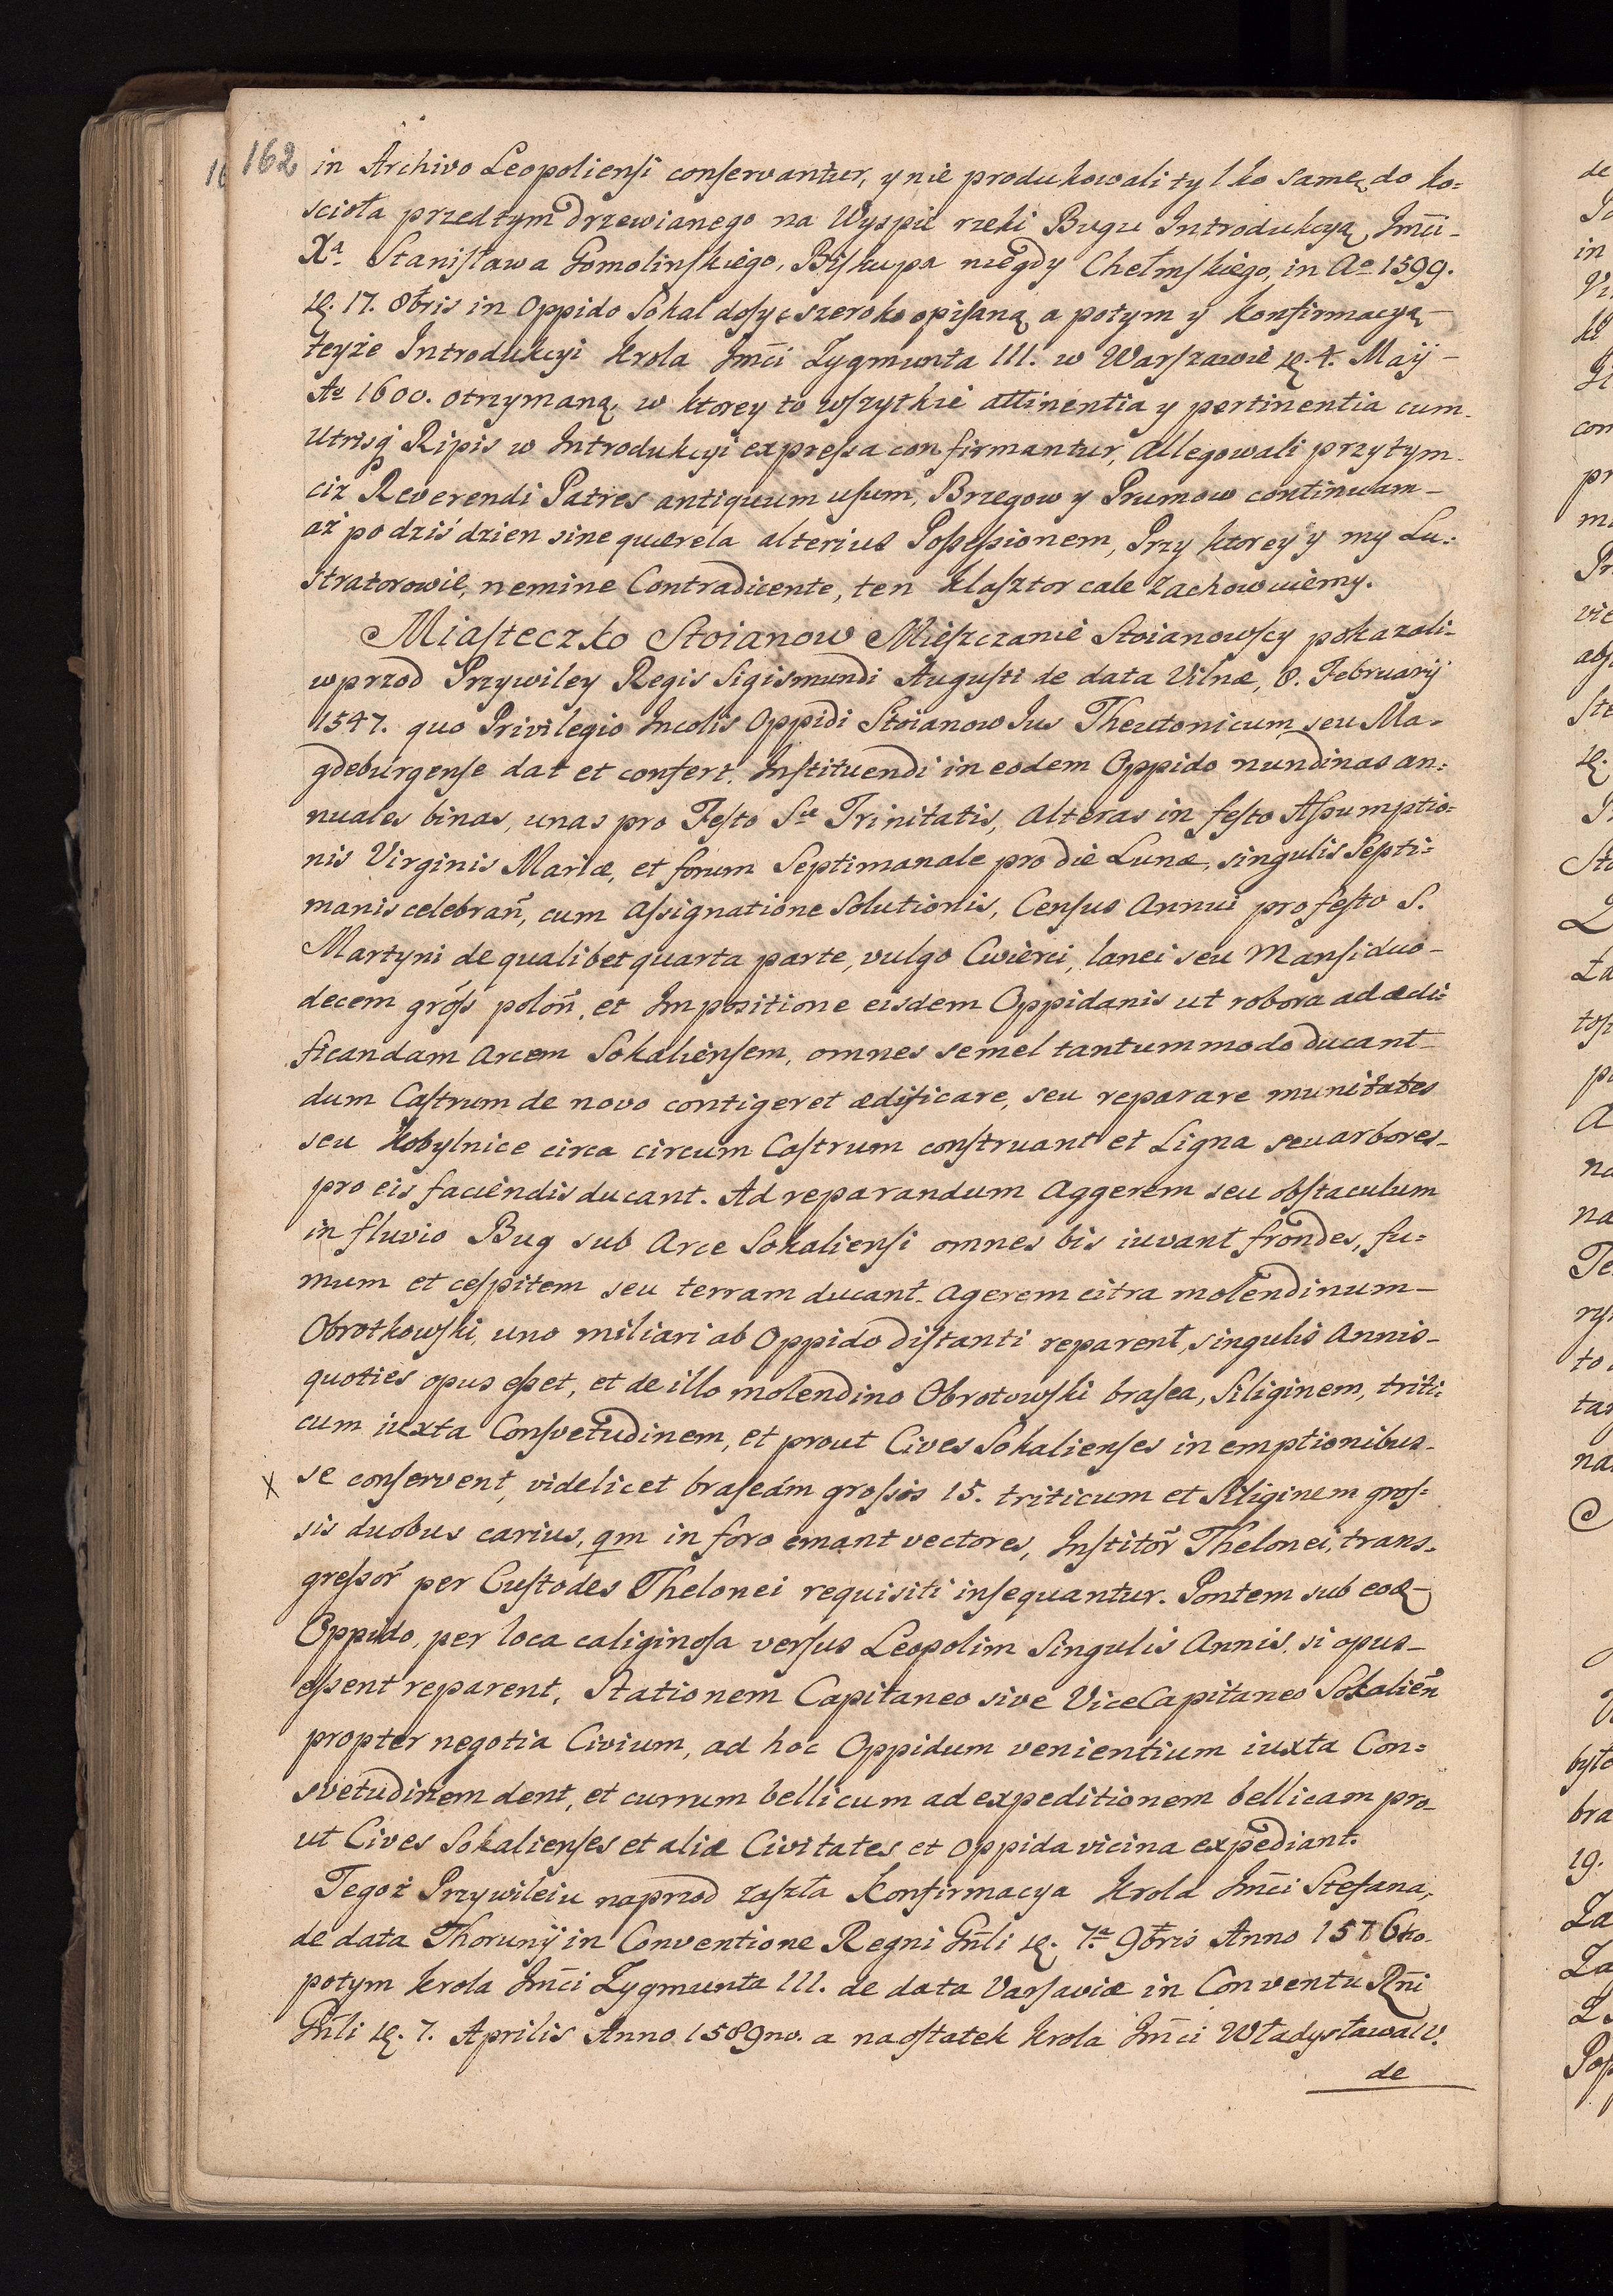 162
in Archivo Leopoliensi conservantur, y nie produkowali tylko samę do ko=
scioła przedtym drzewianego na Wyspie rzeki Bugu Introdukcyą Jmci-
Xa. Stanisława Gomolinskiego, Biskupa niegdy Chełmskiego, in Ao 1599.
d. 17. 8bris in Oppido Sokal dosyc szeroko opisaną a potym y konfirmacyą-
teyże Introdukcyi Krola Jmci Zygmunta III. w Warszawie d. 4. Maij-
Ao 1600. otrzymaną, w ktorey to wszytkie attinentia y pertinentia cum-
Utrisq Ripis w Introdukcyi expressa confirmantur, Allegowali przytym-
ciż Reverendi Patres antiquum usum, Brzegow y Prumow continuam-
aż po dziś dzien sine querela alterius Possessionem, Przy ktorey y my Lu=
stratorowie, nemine Contradicente, ten Klasztor cale zachowuiemy.
Miasteczko Stoianow Mieszczanie Stoianowscy pokazali-
wprzod Przywiley Regis Sigismundi Augusti de data Vilnæ, 8. Februarij
1547. quo Privilegio Incolis Oppidi Stoianow Ius Theutonicum seu Ma-
gdeburgense dat et confert. Instituendi in eodem Oppido nundinas an=
nuales binas, unas pro Festo Sæ Trinitatis, Alteras in festo Assumptio=
nis Virginis Mariæ, et forum Septimanale pro die Lunæ, singulis Septi=
manis celebrañ, cum Assignatione Solutionis, Census Annui pro festo S.
Martyni de qualibet quarta parte, vulgo Cwierci, lanei seu Mansi duo-
decem gróss poloñ, et Impositione eisdem Oppidanis ut robora ad ædi=
ficandam Arcem Sokaliensem, omnes semel tantummodo ducant-
dum Castrum de novo contigeret ædificare, seu reparare munitates
seu Kobylnice circa circum Castrum construant et Ligna seu arbores-
pro eis faciendis ducant. Ad reparandum Aggerem seu obstaculum
in fluvio Bug sub Arce Sokaliensi omnes bis iuvant frondes, fu=
mum et cespitem seu terram ducant. Agerem citra molendinum-
Obrotkowski, uno miliari ab Oppido distanti reparent, singulis Annis-
quoties opus esset, et de illo molendino Obrotowski brasea, Siliginem, triti=
cum iuxta Consvetudinem, et prout Cives Sokalienses in emptionibus-
X se conservent, videlicet braseám grossos 15. triticum et Siliginem gros=
sis duobus carius, qm in foro emant vectores, Institor Thelonei, trans-
gressor per Custodes Thelonei requisiti insequantur. Pontem sub eod-
Oppido, per loca caliginosa versus Leopolim Singulis Annis, si opus-
essent reparent, Stationem Capitaneo sive ViceCapitaneo Sokalieñ
propter negotia Civium, ad hoc Oppidum venientium iuxta Con=
svetudinem dent, et currum bellicum ad expeditionem bellicam pro-
ut Cives Sokalienses et aliæ Civitates et Oppida vicina expediant.
Tegoż Przywileiu naprzod zaszła Konfirmacya Krola Jmci Stefana,
de data Thorunÿ in Conventione Regni Gnli d. 7a 9bris Anno 1576to.
potym Krola Jmci Zygmunta III. de data Varsaviæ in Conventu Rni
Gnli d. 7. Aprilis Anno 1589no. a naostatek Krola Jmci Władysława IV.
de